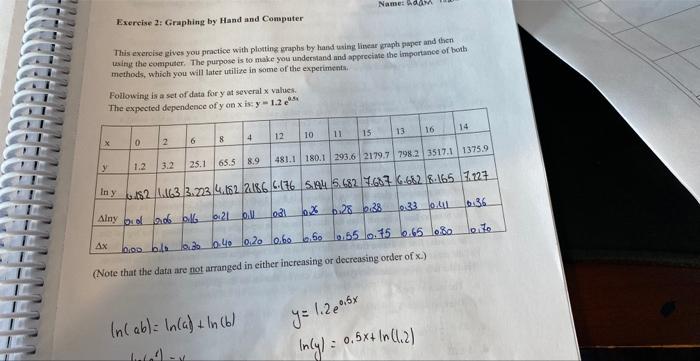 Name:
Exercise 2: Graphing by Hand and Computer
This exercise gives you practice with plotting graphs by hand using linear graph paper and then
using the computer. The purpose is to make you understand and appreciate the importance of both
methods, which you will later utilize in some of the experiments.
Following is a set of data for y at several x values.
The expected dependence of y on x is: y = 1.2 e^0.5x
x 0 2 6 8 4 12 10 11 15 13 16 14
y 1.2 3.2 25.1 65.5 8.9 481.1 180.1 293.6 2179.7 798.2 3517.1 1375.9
ln y 0.182 1.163 3.223 4.182 2.186 6.176 5.194 5.682 7.687 6.682 8.165 7.227
Δlny 0.01 0.06 0.16 0.21 0.11 0.31 0.26 0.28 0.38 0.33 0.41 0.36
Δx 0.00 0.10 0.30 0.40 0.20 0.60 0.50 0.55 0.75 0.65 0.80 0.70
(Note that the data are not arranged in either increasing or decreasing order of x.)
ln(ab) = ln(a) + ln(b)
y = 1.2e^0.5x
ln(y) = 0.5x + ln(1.2)